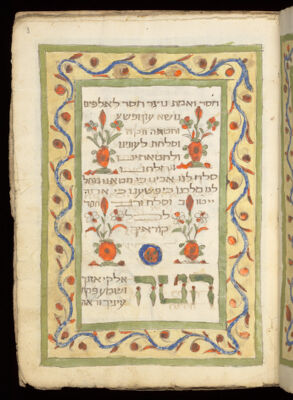 חסד ואמת נוצר חסד לאלפים
נושא עון ופשע
וחטאה ונקה
וסלחת לעונינו
ולחטאתינו
ונחלתנו
סלח לנו אבינו כי חטאנו מחל
לנו מלכנו כי פשענו כי
טוב וסלח ורב חסד
לכל
קוראיך
הטה
אלקי אזנך
ושמע פקח
עיניך וראה